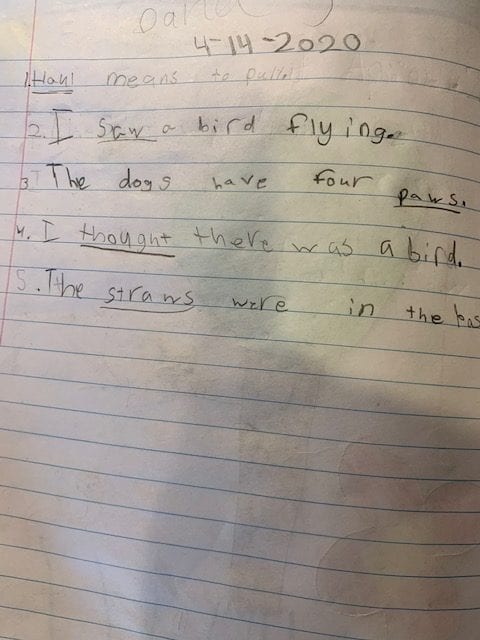 4-14-2020
1. Haul means to pull.
2. I saw a bird flying.
3 The dogs have four paws.
4. I thought there was a bird.
5. The straws were in the bas